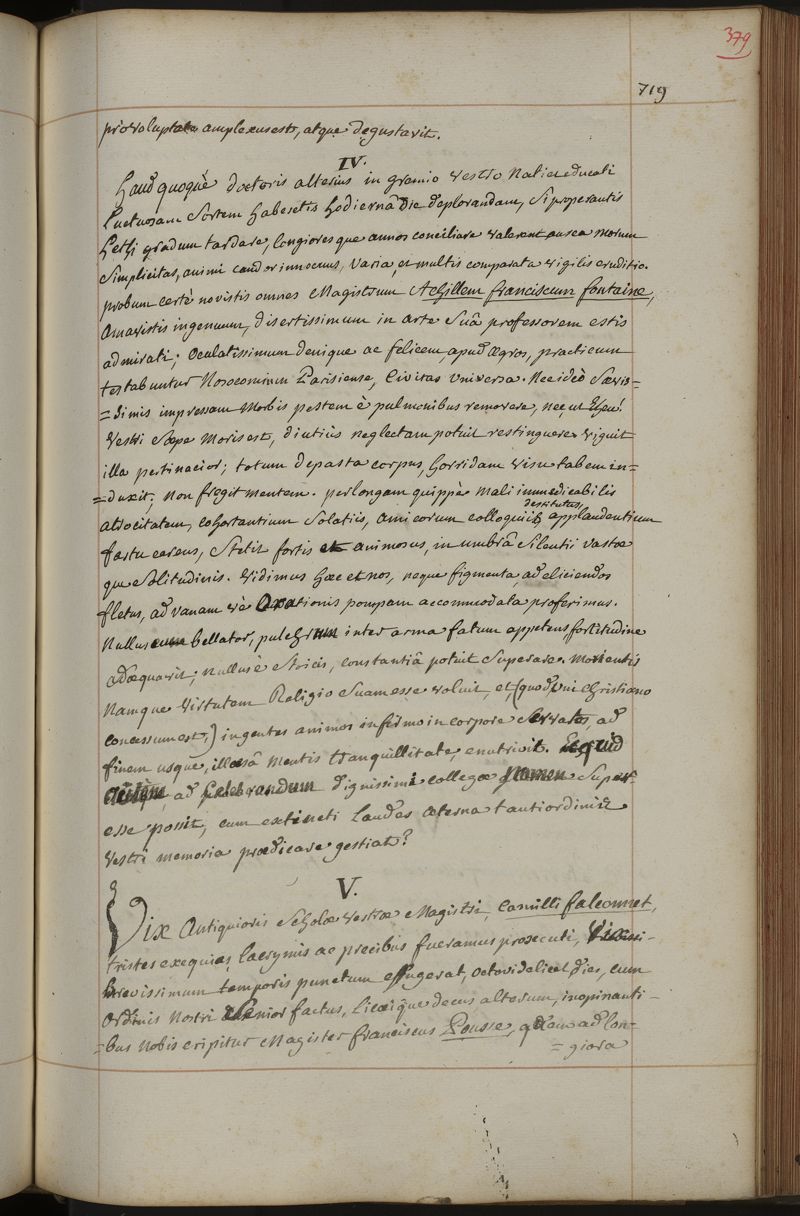 379
719
pro voluptate amplexus est, atque degustavit.
IV.
Haud quoquè doctoris alterius in gremio vestro nati et educati
luctuosam sortem haberetis hodiernâ die deplorandam, si properantis
Lethi gradum tardare, longioresque annos conciliare valerent morum
simplicitas, animi candor innocuus, varia, et multis comparata vigiliis eruditio.
probum certè novistis omnes Magistrum Achillem franciscum fontaine,
amavistis ingenuum, disertissimum in arte suâ professorem estis
admirati; oculatissimum denique ac felicem, apud ægros, practicum
testabuntur Nosocomium Parisiense, Civitas universa. Nec ideò sævis=
=simis impressam morbis pestem è pulmonibus removere, nec, ut Eheu!
vestri sæpe moris est, diutiùs neglectam potuit restinguere. viguit
illa pertinacior; totum depasta corpus, horridam visu tabem in=
=duxit; non fregit mentem. perlongam quippè mali immedicabilis
atrocitatem, cohortantium solatiis, amicorum colloquiis destitutus, applaudentium
fastu carens, stetit fortis et animosus, in umbrâ silentii vastæ
que solitudinis. vidimus hæc et nos, neque figmenta ad eliciendos
fletus, ad vanam vè Orationis pompam accommodata proferimus.
Nullus bellator, pulchrum inter arma fatum appetens, fortitudine
adæquavit; nullus è stoicis, constantiâ potuit superare. Morientis
Namque virtutem Religio suam esse voluit, et, (quod uni christiano
concessum est,) ingentes animos infirmo in corpore servatos, ad
finem usque, illæsâ mentis tranquillitate, enutrivit. Ecquid
ad Celebrandum dignissimi collegæ nomen super
esse possit, cum extincti laudes æterna tanti ordinis
vestri memoria prædicare gestiat?
V.
Vix Antiquioris scholæ vestræ Magistri, Camilli falconnet,
tristes exequias, lacrymis ac precibus fueramus prosecuti,
brevissimum temporis punctum effugerat, octo videlicet dies, cum
Ordinis nostri senior factus, Licæique decus alterum, inopinanti-
=bus nobis eripitur Magister franciscus Pousse, quem ad lon-
=giora